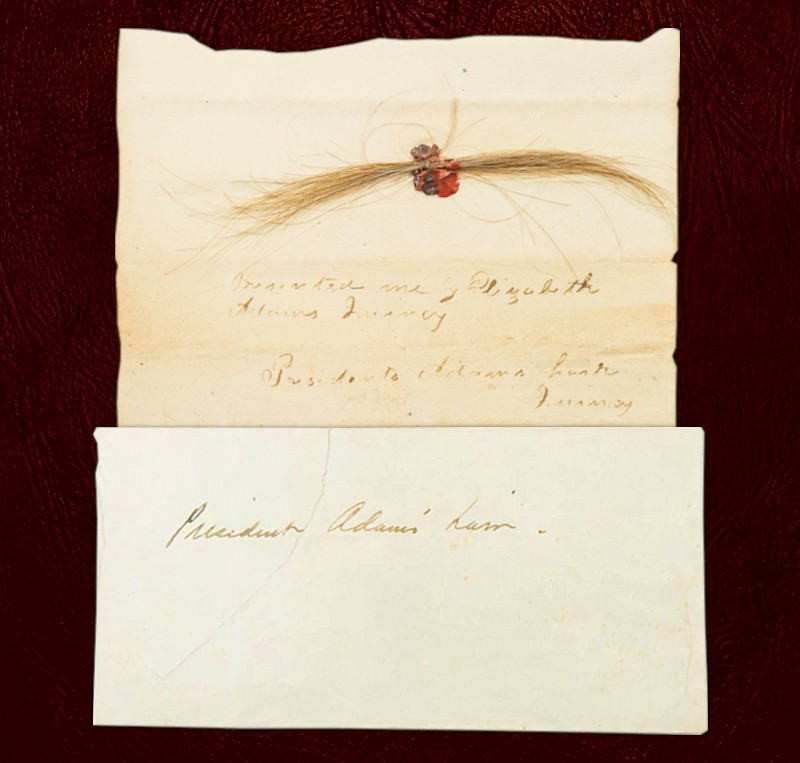 Presented me by Elizabeth
Adams Quincy
Presidents Adams hair
Quincy
President Adams' hair -